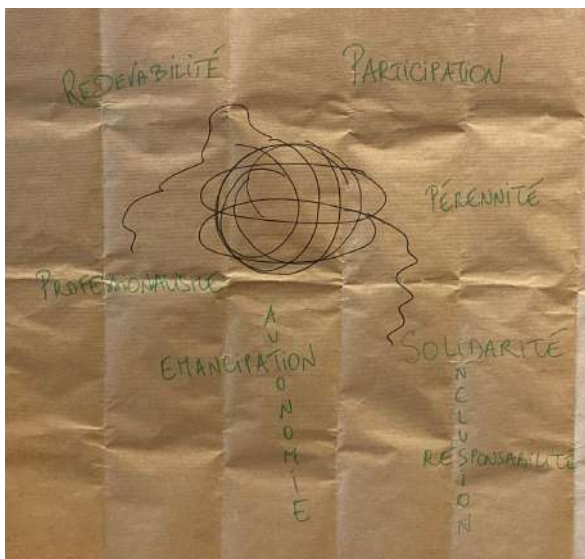 REDEVABILITÉ
PARTICIPATION
PÉRENNITÉ
PROFESSIONALISME
AUTONOMIE
EMANCIPATION
SOLIDARITÉ
INCLUSION
RESPONSABILITÉ